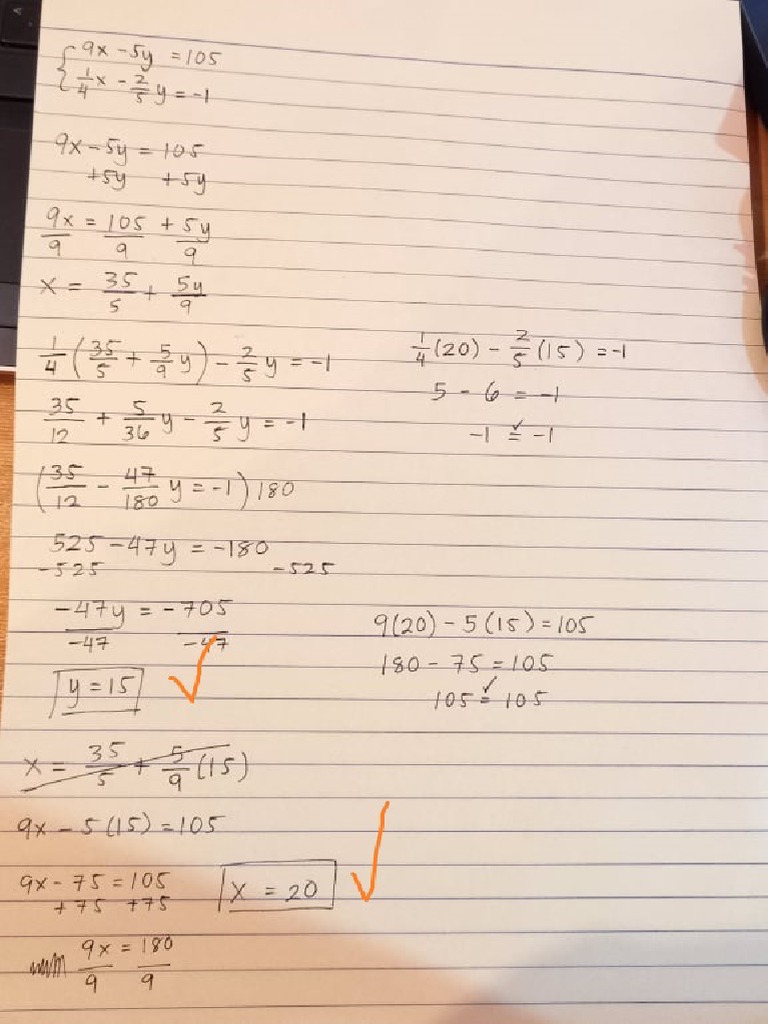 9x - 5y = 105
1/4 x - 2/5 y = -1
9x - 5y = 105
+5y +5y
9x/9 = 105/9 + 5y/9
x = 35/5 + 5y/9
1/4 (35/5 + 5/9 y) - 2/5 y = -1
35/12 + 5/36 y - 2/5 y = -1
(35/12 - 47/180 y = -1) 180
525 - 47y = -180
-525 -525
-47y/-47 = -705/-47
y = 15 ✓
x = 35/5 + 5/9 (15)
9x - 5(15) = 105
9x - 75 = 105
+75 +75
9x/9 = 180/9
x = 20 ✓
1/4 (20) - 2/5 (15) = -1
5 - 6 = -1
-1 =✓ -1
9(20) - 5(15) = 105
180 - 75 = 105
105 =✓ 105